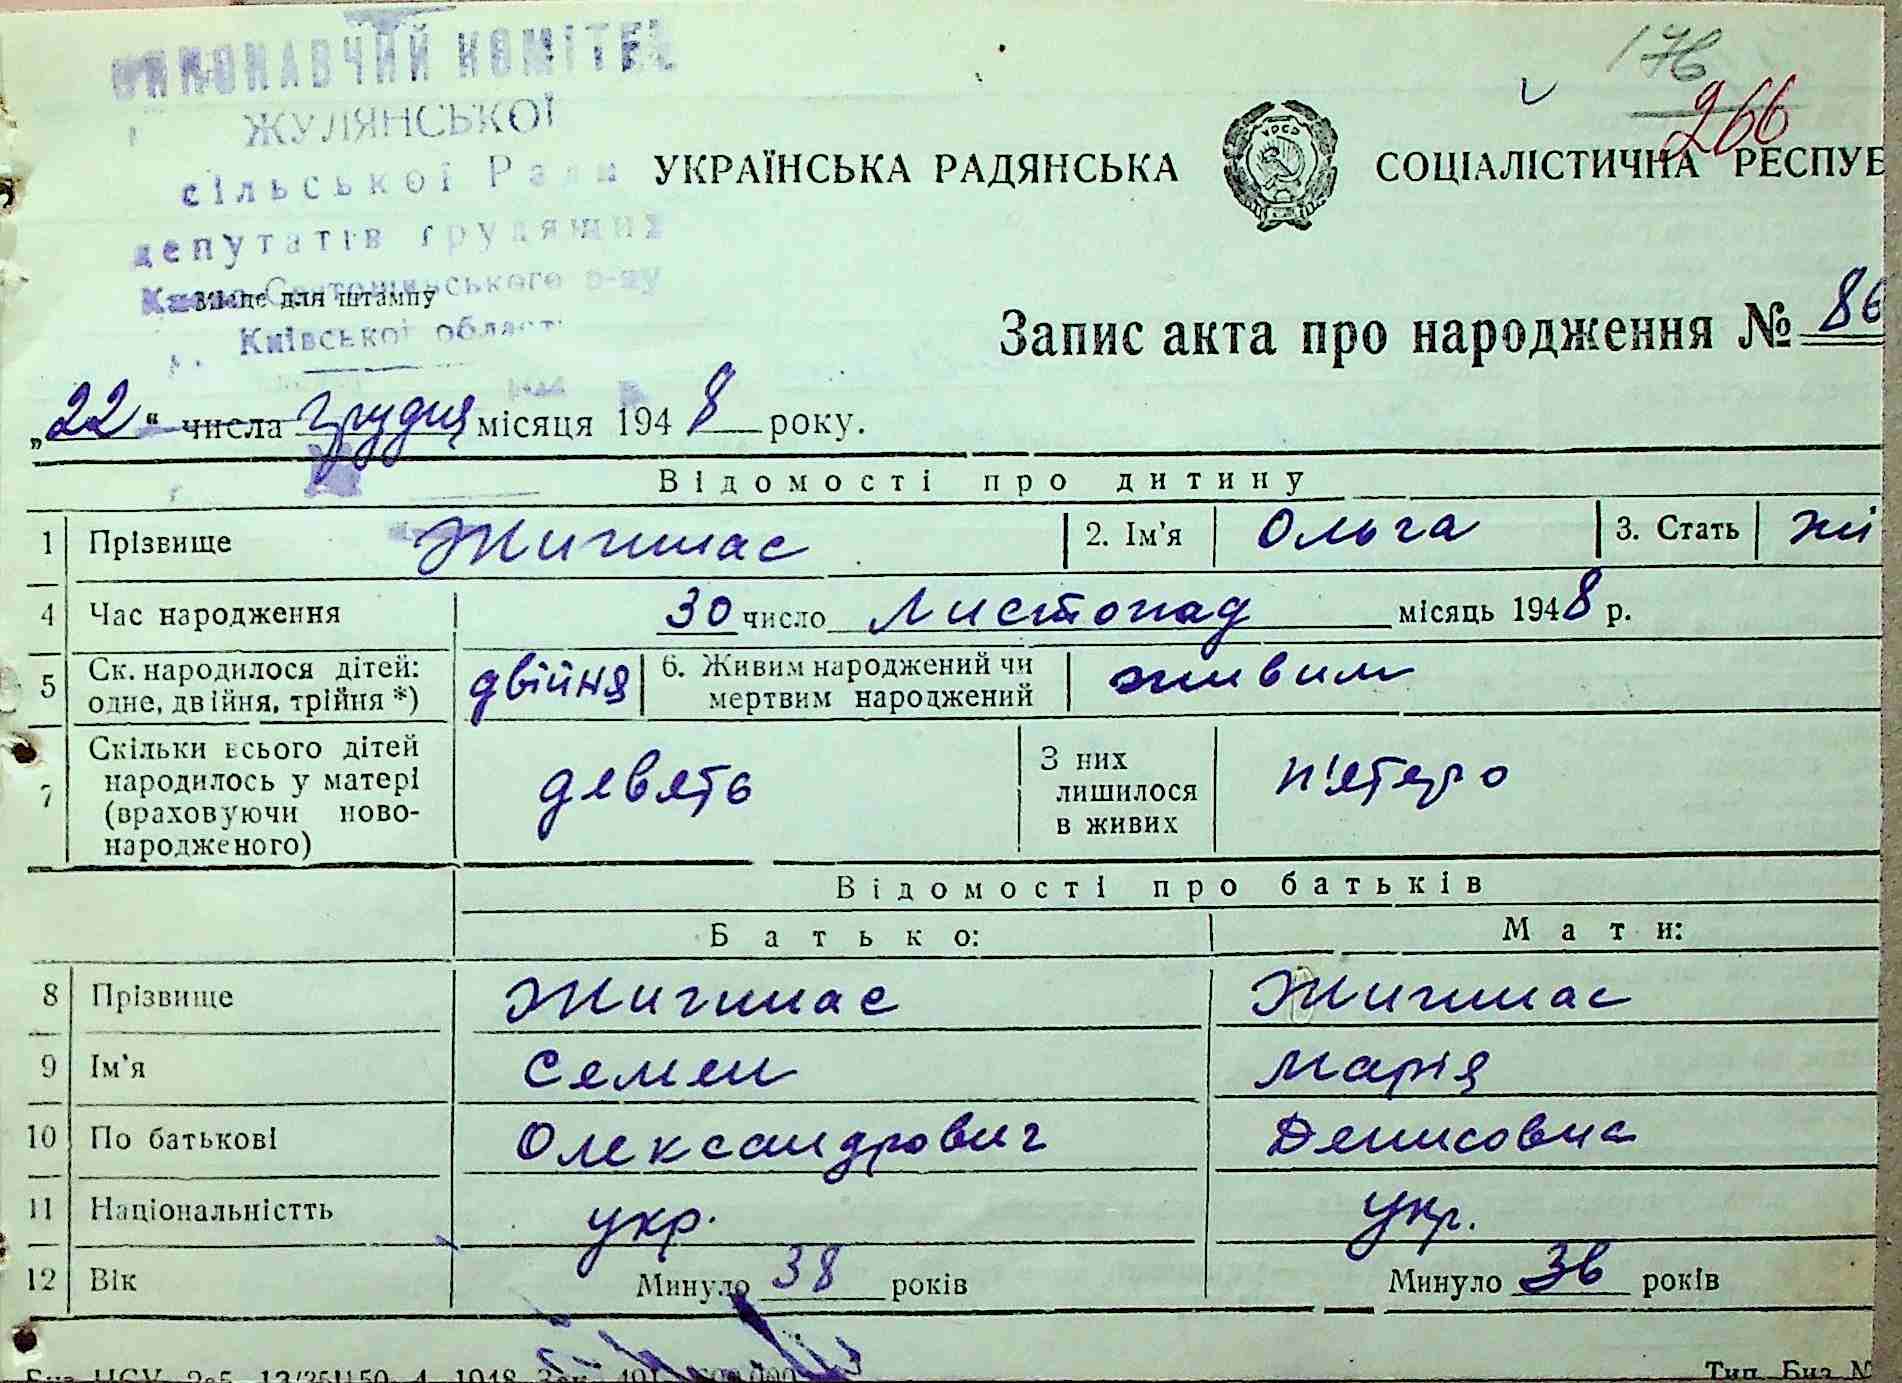 ВИКОНАВЧИЙ КОМІТЕТ
ЖУЛЯНСЬКОЇ
сільської Ради
депутатів трудящих
Києво-Святошинського р-ну
Місце для штампу
Київської області
176
266
УКРАЇНСЬКА РАДЯНСЬКА СОЦІАЛІСТИЧНА РЕСПУБ
УРСР
Запис акта про народження № 86
„22“ числа грудня місяця 1948 року.
Відомості про дитину
1 Прізвище Жигмас 2. Ім'я Ольга 3. Стать жі
4 Час народження 30 число Листопад місяць 1948 р.
5 Ск. народилося дітей: одне, двійня, трійня *) двійня 6. Живим народжений чи мертвим народжений живим
7 Скільки всього дітей народилось у матері (враховуючи ново-народженого) девять З них лишилося в живих п'ятеро
Відомості про батьків
Батько: Мати:
8 Прізвище Жигмас Жигмас
9 Ім'я Семен Марія
10 По батькові Олександрович Денисовна
11 Національністть укр. укр.
12 Вік Минуло 38 років Минуло 36 років